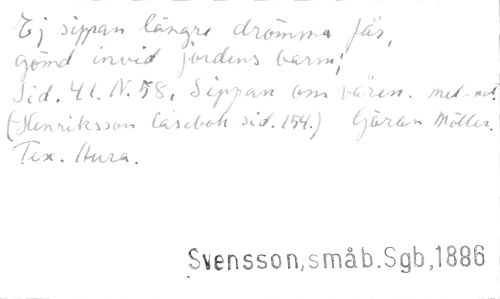 Ej sippan längre drömma får,
gömd invid jordens barm,
Sid. 41. N. 58. Sippan om våren. med not
(Henriksson läsebok sid. 154.) Göran Möller.
Tex. Aura.
Svensson,småb.Sgb,1886